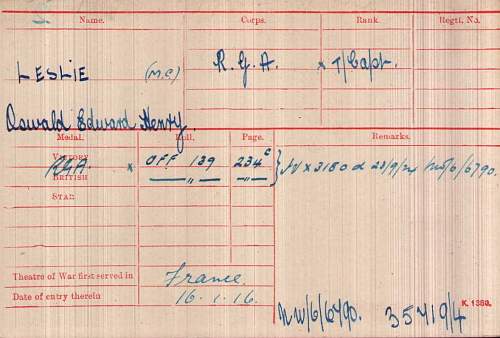 Name. Corps. Rank. Regtl. No.
LESLIE (M.C.) R.G.A. x T/Capt.
Oswald Edward Henry.
Medal. Roll. Page. Remarks.
VICTORY RGA. x OFF 139 234c
BRITISH — " — — " —
IV x 3180 d 23/9/24 NW/6/6790.
STAR
Theatre of War first served in France.
Date of entry therein 16.1.16.
NW/6/6790. 35419/4
K. 1380.